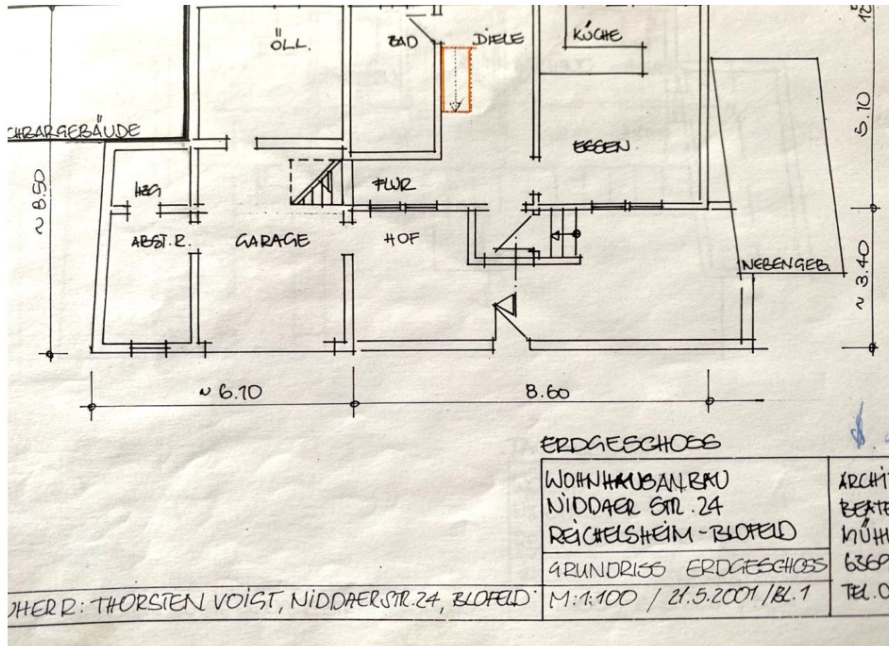 ÖLL.
BAD
DIELE
KÜCHE
12
CHRARGEBÄUDE
5.10
ESSEN
HZG
FLUR
~ 8.50
ABST.R.
GARAGE
HOF
NEBENGEB.
~ 3.40
~ 6.10
8.60
ERDGESCHOSS
WOHNHAUSANBAU
NIDDAER STR. 24
REICHELSHEIM-BLOFELD
GRUNDRISS ERDGESCHOSS
M:1:100 / 21.5.2001 / BL.1
ARCHI
BEATE
MÜH
TEL.0
HERR: THORSTEN VOIGT, NIDDAERSTR.24, BLOFELD